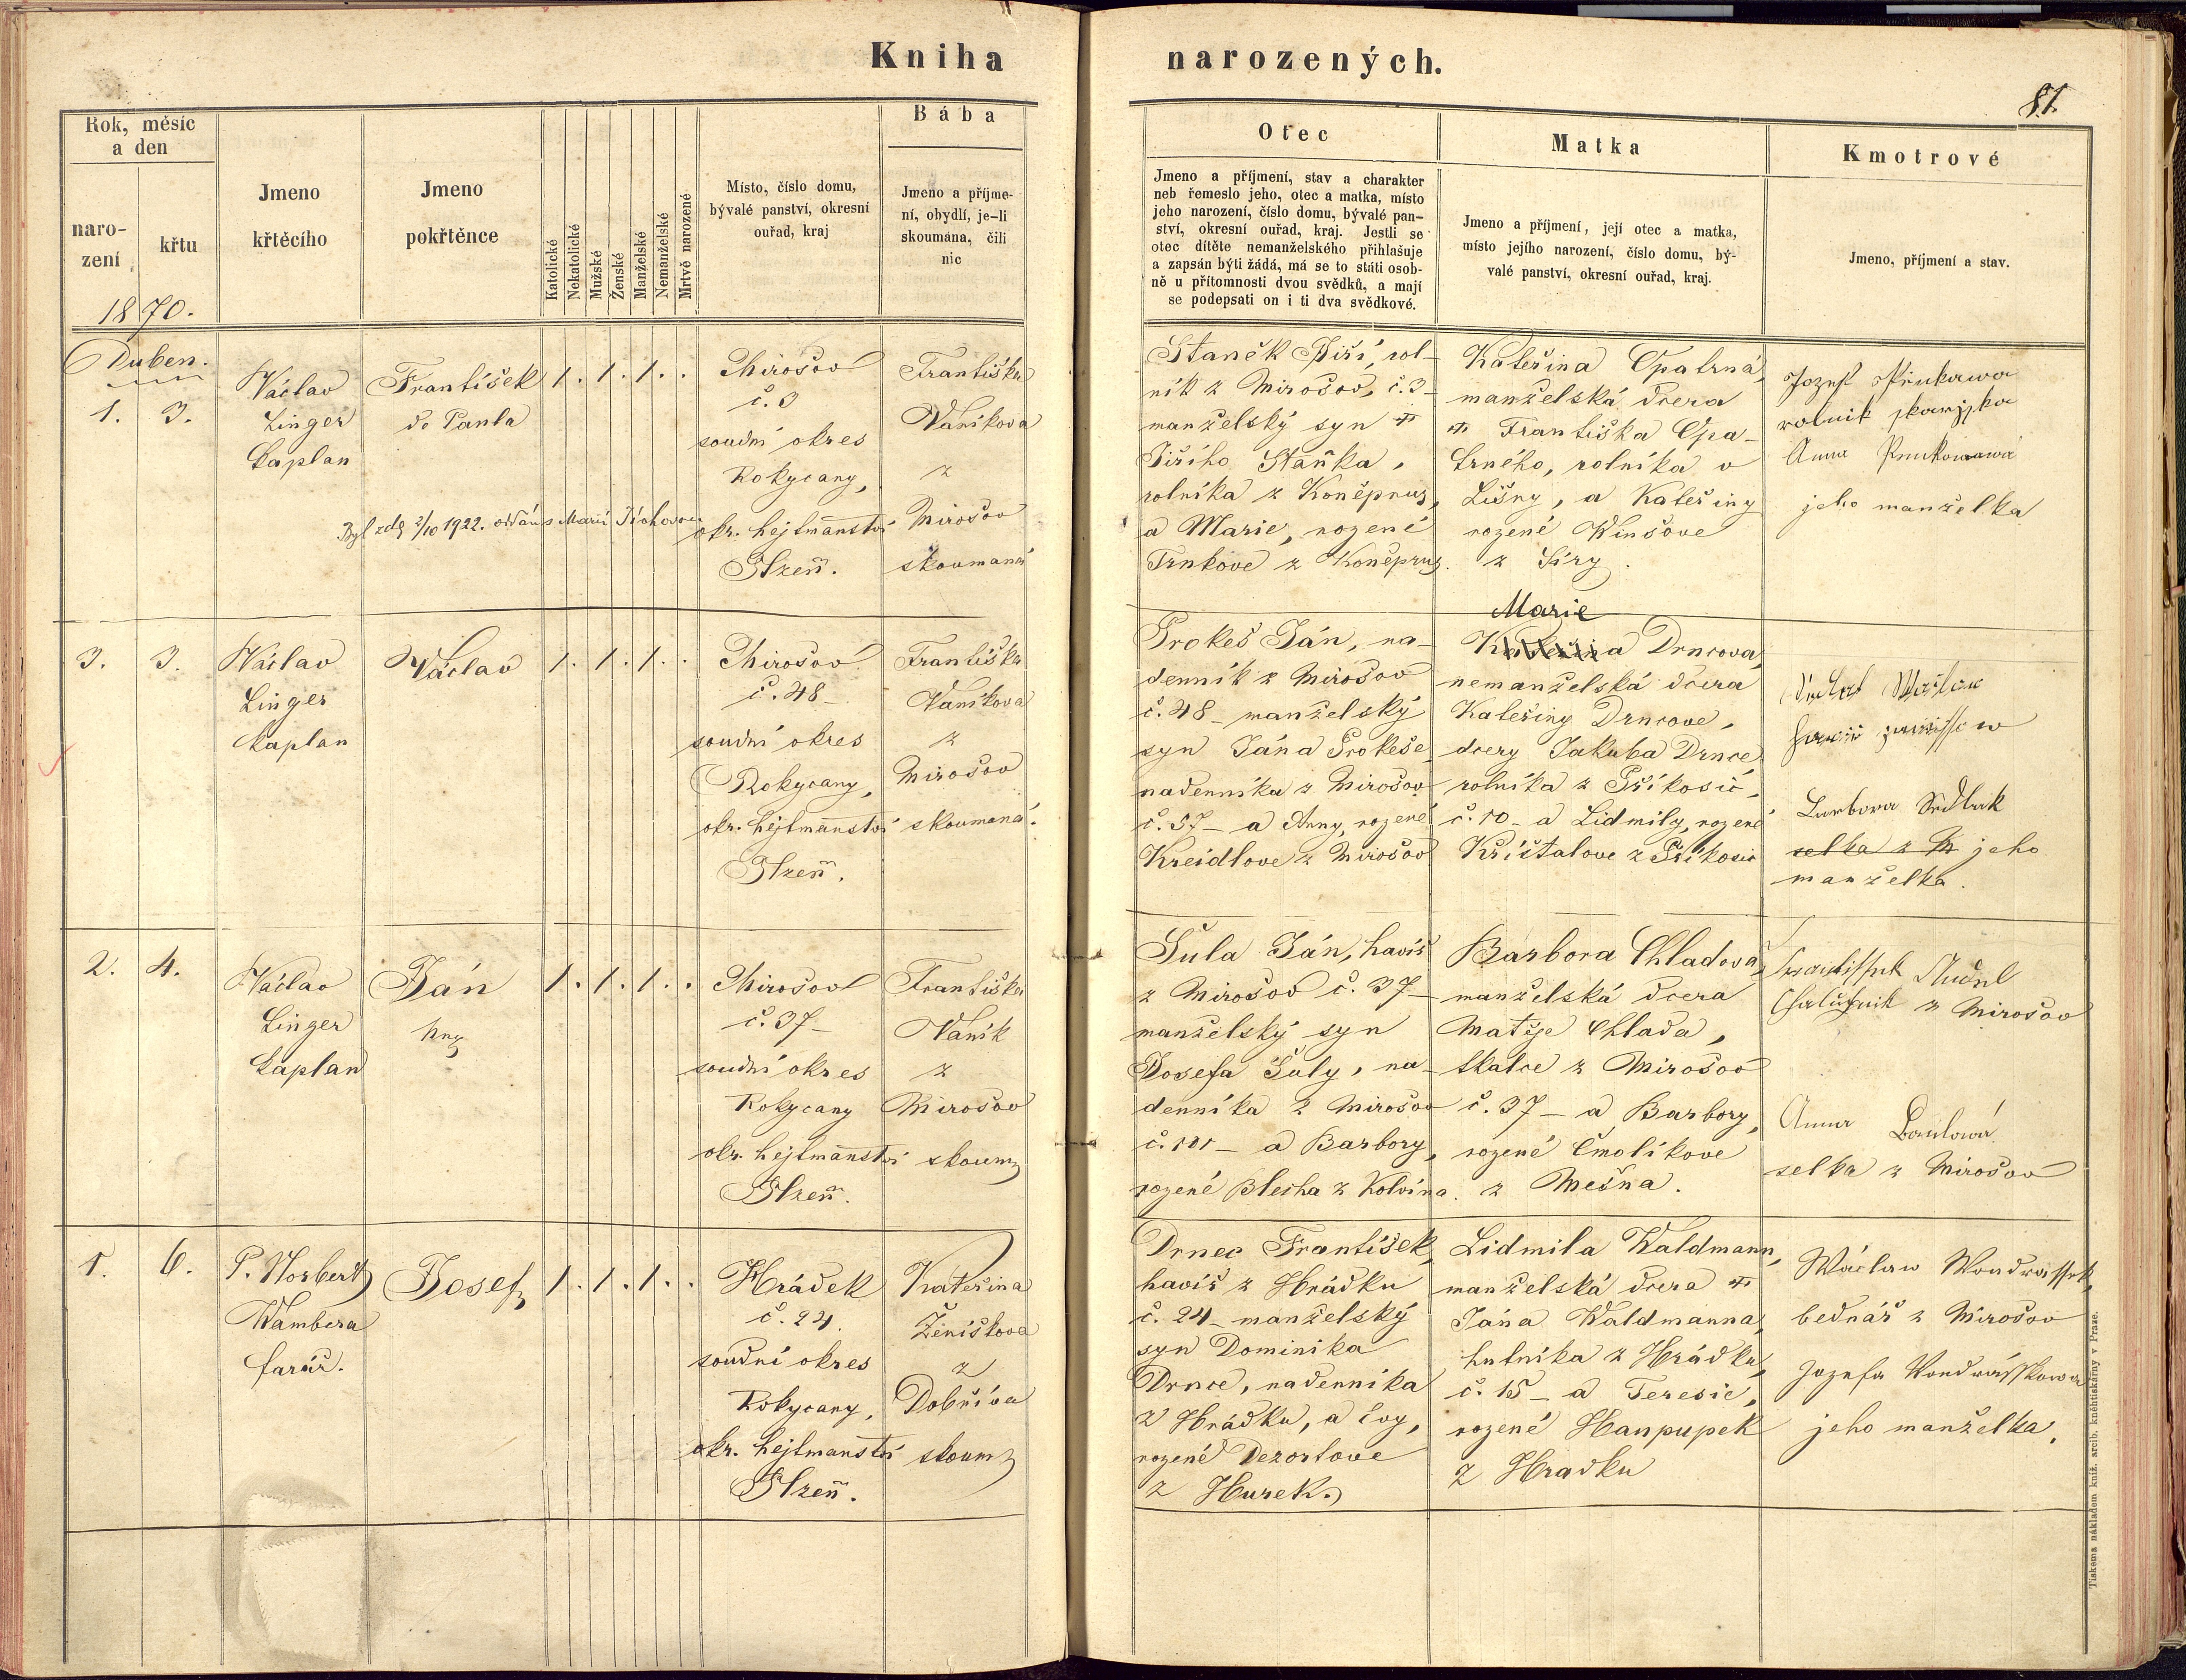 Kniha narozených.
81.
Rok, měsíc
a den
naro-
zení
křtu
Jmeno
křtěcího
Jmeno
pokřtěnce
Katolické
Nekatolické
Mužské
Ženské
Manželské
Nemanželské
Mrtvě narozené
Místo, číslo domu,
bývalé panství, okresní
ouřad, kraj
Bába
Jmeno a příjme-
ní, obydlí, je-li
skoumána, čili
nic
Otec
Jmeno a příjmení, stav a charakter
neb řemeslo jeho, otec a matka, místo
jeho narození, číslo domu, bývalé pan-
ství, okresní ouřad, kraj. Jestli se
otec dítěte nemanželského přihlašuje
a zapsán býti žádá, má se to státi osob-
ně u přítomnosti dvou svědků, a mají
se podepsati on i ti dva svědkové.
Matka
Jmeno a příjmení, její otec a matka,
místo jejího narození, číslo domu, bý-
valé panství, okresní ouřad, kraj.
Kmotrové
Jmeno, příjmení a stav.
1870.
Duben.
1. 3.
Václav
Linger
kaplan
František
de Paula
1. 1. 1.
Mirošov
č. 3
soudní okres
Rokycany,
okr. hejtmanství
Plzeň.
Františka
Vaníkova
z
Mirošov
skoumaná
Byl zde 2/10 1922. oddán s Marií
Staněk Jiří, rol-
ník z Mirošov, č. 3
manželský syn
Jiřího Staňka,
rolníka z Koněprus,
a Marie, rozené
Trnkove z Koněprus.
Kateřina Opatrná,
manželská dcera
Františka Opa-
trného, rolníka v
Lišny, a Kateřiny
rozené Winšove
z Síry.
rolnik
Anna
jeho manželka
3. 3.
Václav
Linger
kaplan
Václav
1. 1. 1.
Mirošov
č. 48
soudní okres
Rokycany,
okr. hejtmanství
Plzeň.
Františka
Vaníkova
z
Mirošov
skoumaná.
Prokeš Ján, na-
denník z Mirošov
č. 48 manželský
syn Jána Prokeše
nadenníka z Mirošov
č. 37 a Anny, rozené
Kreidlove z Mirošov
Marie
Kateřina Drncova,
nemanželská dcera
Kateřiny Drncove,
dcery Jakuba Drnce
rolníka z Příkosic,
č. 10 a Lidmily, rozené
Křištalove z Příkosic
Sedlak
selka z M jeho
manželka.
2. 4.
Václav
Linger
kaplan
Ján
1. 1. 1.
Mirošov
č. 37
soudní okres
Rokycany
okr. hejtmanství
Plzeň.
Františka
Vaník
z
Mirošov
skoum
Šula Ján, havíř
z Mirošov č. 37
manželský syn
Josefa Šuly, na-
denníka z Mirošov
č. 101 a Barbory,
rozené Blecha z Kolvína.
Barbora Chladova,
manželská dcera
Matěje Chlada,
skalce z Mirošov
č. 37 a Barbory,
rozené Čmolíkove
z Mešna.
z Mirošov
Anna
selka z Mirošov
1. 6.
P. Norbert
Wambera
farář.
Josef
1. 1. 1.
Hrádek
č. 24.
soudní okres
Rokycany,
okr. hejtmanství
Plzeň.
Kateřina
Ženíškova
z
Dobříva
skoum
Drnec František,
havíř z Hrádku
č. 24 manželský
syn Dominika
Drnce, nadenníka
z Hrádku, a Evy,
rozené Dezortove
z Hurek.
Lidmila Waldmann,
manželská dcera
Jána Waldmanna,
hutníka z Hrádku,
č. 15 a Teresie,
rozené Haupupek
z Hradku
Wáclaw Wondrassek,
bednář z Mirošov
Jozefa Wondrásskowa
jeho manželka.
Tiskema nákladem kníž. arcib. kněhtiskárny v Praze.